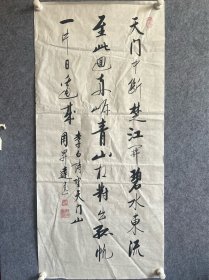 天门中断楚江开碧水东流
至此回两岸青山相对出孤帆
一片日边来
李白诗望天门山